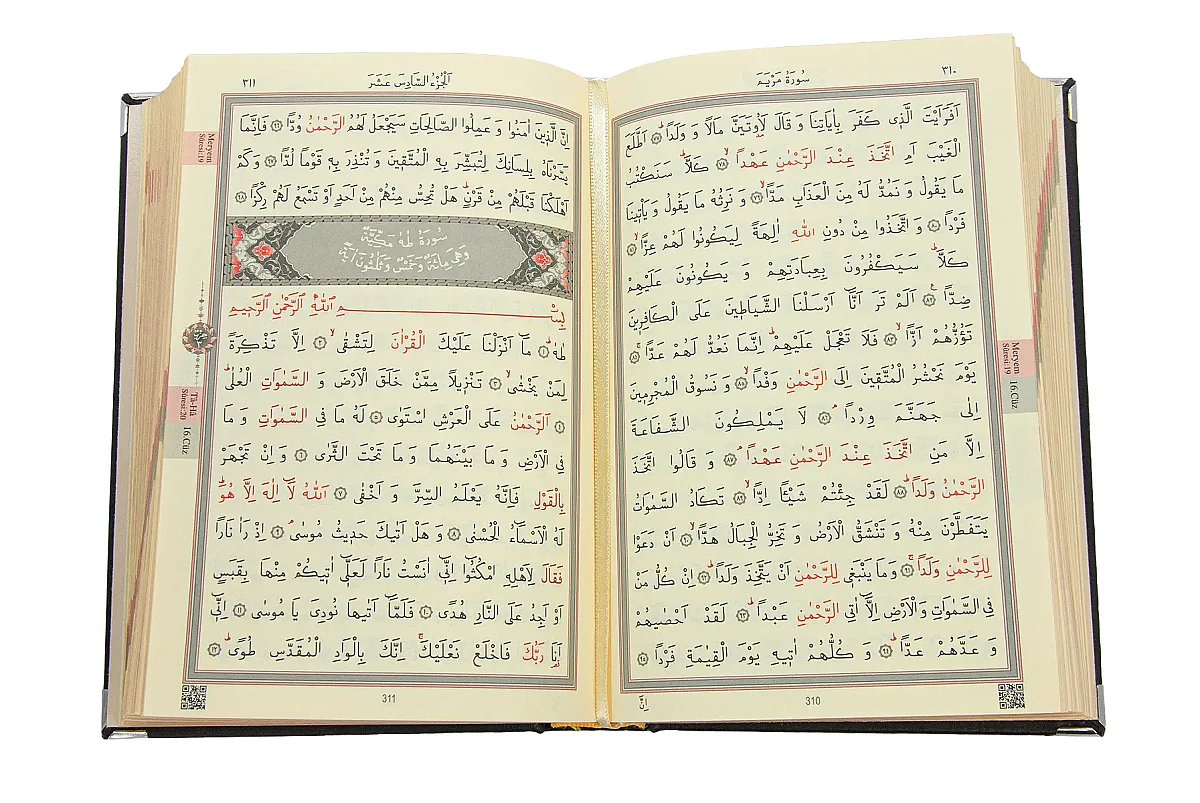 ٣١٠
سُورَةُ مَرْيَمَ
اَفَرَاَيْتَ الَّذ۪ي كَفَرَ بِاٰيَاتِنَا وَ قَالَ لَاُو۫تَيَنَّ مَالاً وَ وَلَداًۜ ﴿٧٧﴾ اَطَّلَعَ
الْغَيْبَ اَمِ اتَّخَذَ عِنْدَ الرَّحْمٰنِ عَهْداًۙ ﴿٧٨﴾ كَلَّاۜ سَنَكْتُبُ
مَا يَقُولُ وَ نَمُدُّ لَهُ مِنَ الْعَذَابِ مَداًّۙ ﴿٧٩﴾ وَ نَرِثُهُ مَا يَقُولُ وَ يَأْت۪ينَا
فَرْداً ﴿٨٠﴾ وَ اتَّخَذُوا مِنْ دُونِ اللّٰهِ اٰلِهَةً لِيَكُونُوا لَهُمْ عِزاًّۙ ﴿٨١﴾
كَلَّاۜ سَيَكْفُرُونَ بِعِبَادَتِهِمْ وَ يَكُونُونَ عَلَيْهِمْ
ضِداًّ۟ ﴿٨٢﴾ اَلَمْ تَرَ اَنَّٓا اَرْسَلْنَا الشَّيَاط۪ينَ عَلَى الْكَافِر۪ينَ
تَؤُزُّهُمْ اَزاًّۙ ﴿٨٣﴾ فَلَا تَعْجَلْ عَلَيْهِمْۜ اِنَّمَا نَعُدُّ لَهُمْ عَداًّۚ ﴿٨٤﴾
يَوْمَ نَحْشُرُ الْمُتَّق۪ينَ اِلَى الرَّحْمٰنِ وَفْداًۙ ﴿٨٥﴾ وَ نَسُوقُ الْمُجْرِم۪ينَ
اِلٰى جَهَنَّمَ وِرْداًۢ ﴿٨٦﴾ لَا يَمْلِكُونَ الشَّفَاعَةَ
اِلَّا مَنِ اتَّخَذَ عِنْدَ الرَّحْمٰنِ عَهْداًۢ ﴿٨٧﴾ وَ قَالُوا اتَّخَذَ
الرَّحْمٰنُ وَلَداًۜ ﴿٨٨﴾ لَقَدْ جِئْتُمْ شَيْـٔاً اِداًّۙ ﴿٨٩﴾ تَكَادُ السَّمٰوَاتُ
يَتَفَطَّرْنَ مِنْهُ وَ تَنْشَقُّ الْاَرْضُ وَ تَخِرُّ الْجِبَالُ هَداًّۙ ﴿٩٠﴾ اَنْ دَعَوْا
لِلرَّحْمٰنِ وَلَداًۚ ﴿٩١﴾ وَ مَا يَنْبَغ۪ي لِلرَّحْمٰنِ اَنْ يَتَّخِذَ وَلَداًۜ ﴿٩٢﴾ اِنْ كُلُّ مَنْ
فِي السَّمٰوَاتِ وَ الْاَرْضِ اِلَّٓا اٰتِي الرَّحْمٰنِ عَبْداًۜ ﴿٩٣﴾ لَقَدْ اَحْصٰيهُمْ
وَ عَدَّهُمْ عَداًّۜ ﴿٩٤﴾ وَ كُلُّهُمْ اٰت۪يهِ يَوْمَ الْقِيٰمَةِ فَرْداً ﴿٩٥﴾
اِنَّ
310
Meryem
Sûresi:19
16.Cüz
اَلْجُزْءُ السَّادِسَ عَشَرَ
٣١١
اِنَّ الَّذ۪ينَ اٰمَنُوا وَ عَمِلُوا الصَّالِحَاتِ سَيَجْعَلُ لَهُمُ الرَّحْمٰنُ وُداًّ ﴿٩٦﴾ فَاِنَّمَا
يَسَّرْنَاهُ بِلِسَانِكَ لِتُبَشِّرَ بِهِ الْمُتَّق۪ينَ وَ تُنْذِرَ بِه۪ قَوْماً لُداًّ ﴿٩٧﴾ وَ كَمْ
اَهْلَكْنَا قَبْلَهُمْ مِنْ قَرْنٍۜ هَلْ تُحِسُّ مِنْهُمْ مِنْ اَحَدٍ اَوْ تَسْمَعُ لَهُمْ رِكْزاً ﴿٩٨﴾
سُورَةُ طٰهٰ مَكِّيَّةٌ
وَهِيَ مِائَةٌ وَخَمْسٌ وَثَلٰثُونَ اٰيَةً
بِسْمِ اللّٰهِ الرَّحْمٰنِ الرَّح۪يمِ
طٰهٰۜ ﴿١﴾ مَٓا اَنْزَلْنَا عَلَيْكَ الْقُرْاٰنَ لِتَشْقٰىۙ ﴿٢﴾ اِلَّا تَذْكِرَةً
لِمَنْ يَخْشٰىۙ ﴿٣﴾ تَنْز۪يلاً مِمَّنْ خَلَقَ الْاَرْضَ وَ السَّمٰوَاتِ الْعُلٰىۜ
﴿٤﴾ اَلرَّحْمٰنُ عَلَى الْعَرْشِ اسْتَوٰى ﴿٥﴾ لَهُ مَا فِي السَّمٰوَاتِ وَ مَا
فِي الْاَرْضِ وَ مَا بَيْنَهُمَا وَ مَا تَحْتَ الثَّرٰى ﴿٦﴾ وَ اِنْ تَجْهَرْ
بِالْقَوْلِ فَاِنَّهُ يَعْلَمُ السِّرَّ وَ اَخْفٰى ﴿٧﴾ اَللّٰهُ لَٓا اِلٰهَ اِلَّا هُوَۜ
لَهُ الْاَسْمَٓاءُ الْحُسْنٰى ﴿٨﴾ وَ هَلْ اَتٰيكَ حَد۪يثُ مُوسٰىۢ ﴿٩﴾ اِذْ رَاٰ نَاراً
فَقَالَ لِاَهْلِهِ امْكُـثُٓوا اِنّ۪ٓي اٰنَسْتُ نَاراً لَعَلّ۪ٓي اٰت۪يكُمْ مِنْهَا بِقَبَسٍ
اَوْ اَجِدُ عَلَى النَّارِ هُدًى ﴿١٠﴾ فَلَمَّٓا اَتٰيهَا نُودِيَ يَا مُوسٰى ﴿١١﴾ اِنّ۪ٓي
اَنَا رَبُّكَ فَاخْلَعْ نَعْلَيْكَۚ اِنَّكَ بِالْوَادِ الْمُقَدَّسِ طُوًىۜ ﴿١٢﴾
311
Meryem
Sûresi:19
Tâ-Hâ
Sûresi:20
16.Cüz